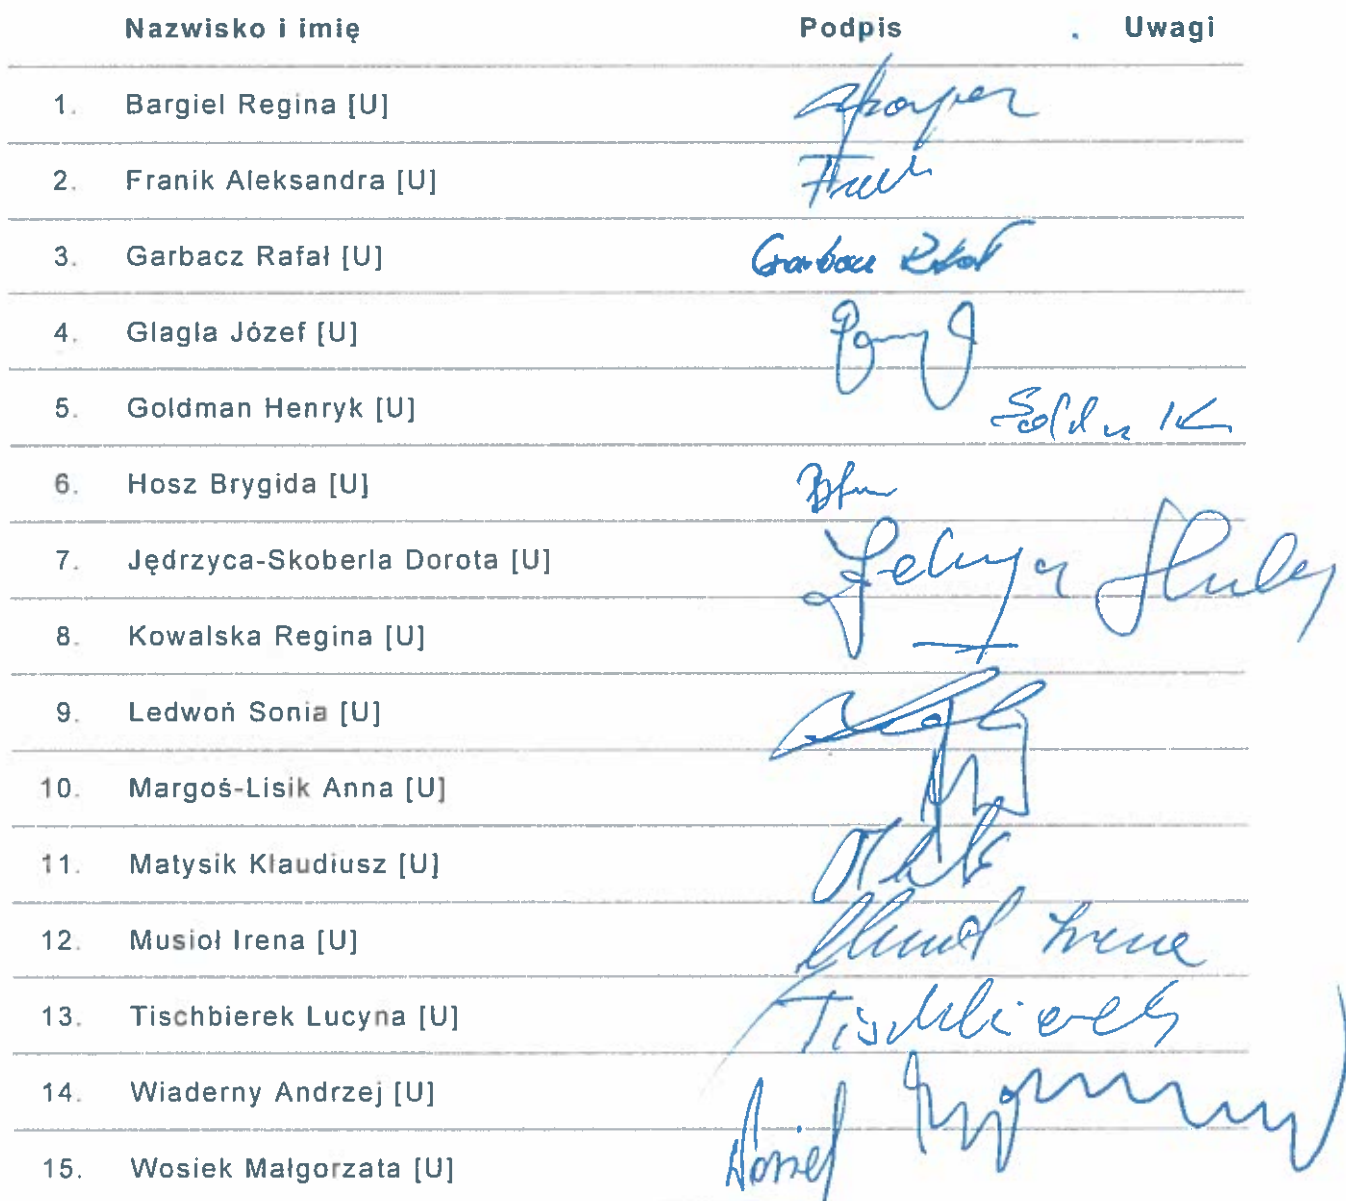 Nazwisko i imię Podpis Uwagi
1. Bargiel Regina [U]
2. Franik Aleksandra [U]
3. Garbacz Rafał [U] Garbacz Rafał
4. Glagla Józef [U]
5. Goldman Henryk [U]
6. Hosz Brygida [U]
7. Jędrzyca-Skoberla Dorota [U]
8. Kowalska Regina [U]
9. Ledwoń Sonia [U]
10. Margoś-Lisik Anna [U]
11. Matysik Klaudiusz [U]
12. Musioł Irena [U] Musioł Irena
13. Tischbierek Lucyna [U] Tischbierek
14. Wiaderny Andrzej [U]
15. Wosiek Małgorzata [U]